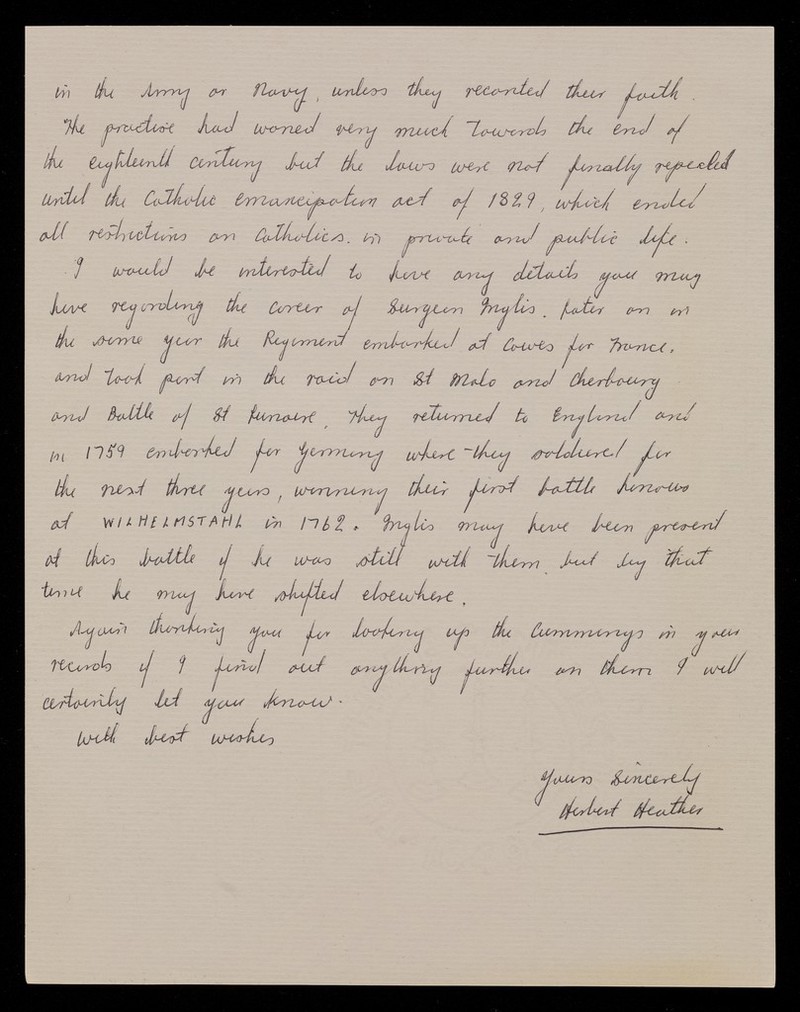 in the Army or Navy, unless they recanted their faith.
The practise had waned very much towards the end of
the eighteenth century but the laws were not finally repealed
until the Catholic emancipation act of 1829, which ended
all restrictions on Catholics. in private and public life.
I would be interested to have any details you may
have regarding the career of Surgeon Inglis. Later on in
the same year the Regiment embarked at Cowes for France,
and took part in the raid on St Malo and Cherbourg
and Battle of St Lunaire. They returned to England and
in 1759 embarked for Germany where they soldiered for
the next three years, winning their first battle honours
at WILHELMSTAHL in 1762. Inglis may have been present
at this battle if he was still with them. but by that
time he may have shifted elsewhere.
Again thanking you for looking up the Cummings in your
records if I find out anything further on them I will
certainly let you know.
With best wishes
Yours Sincerely
Herbert Heather